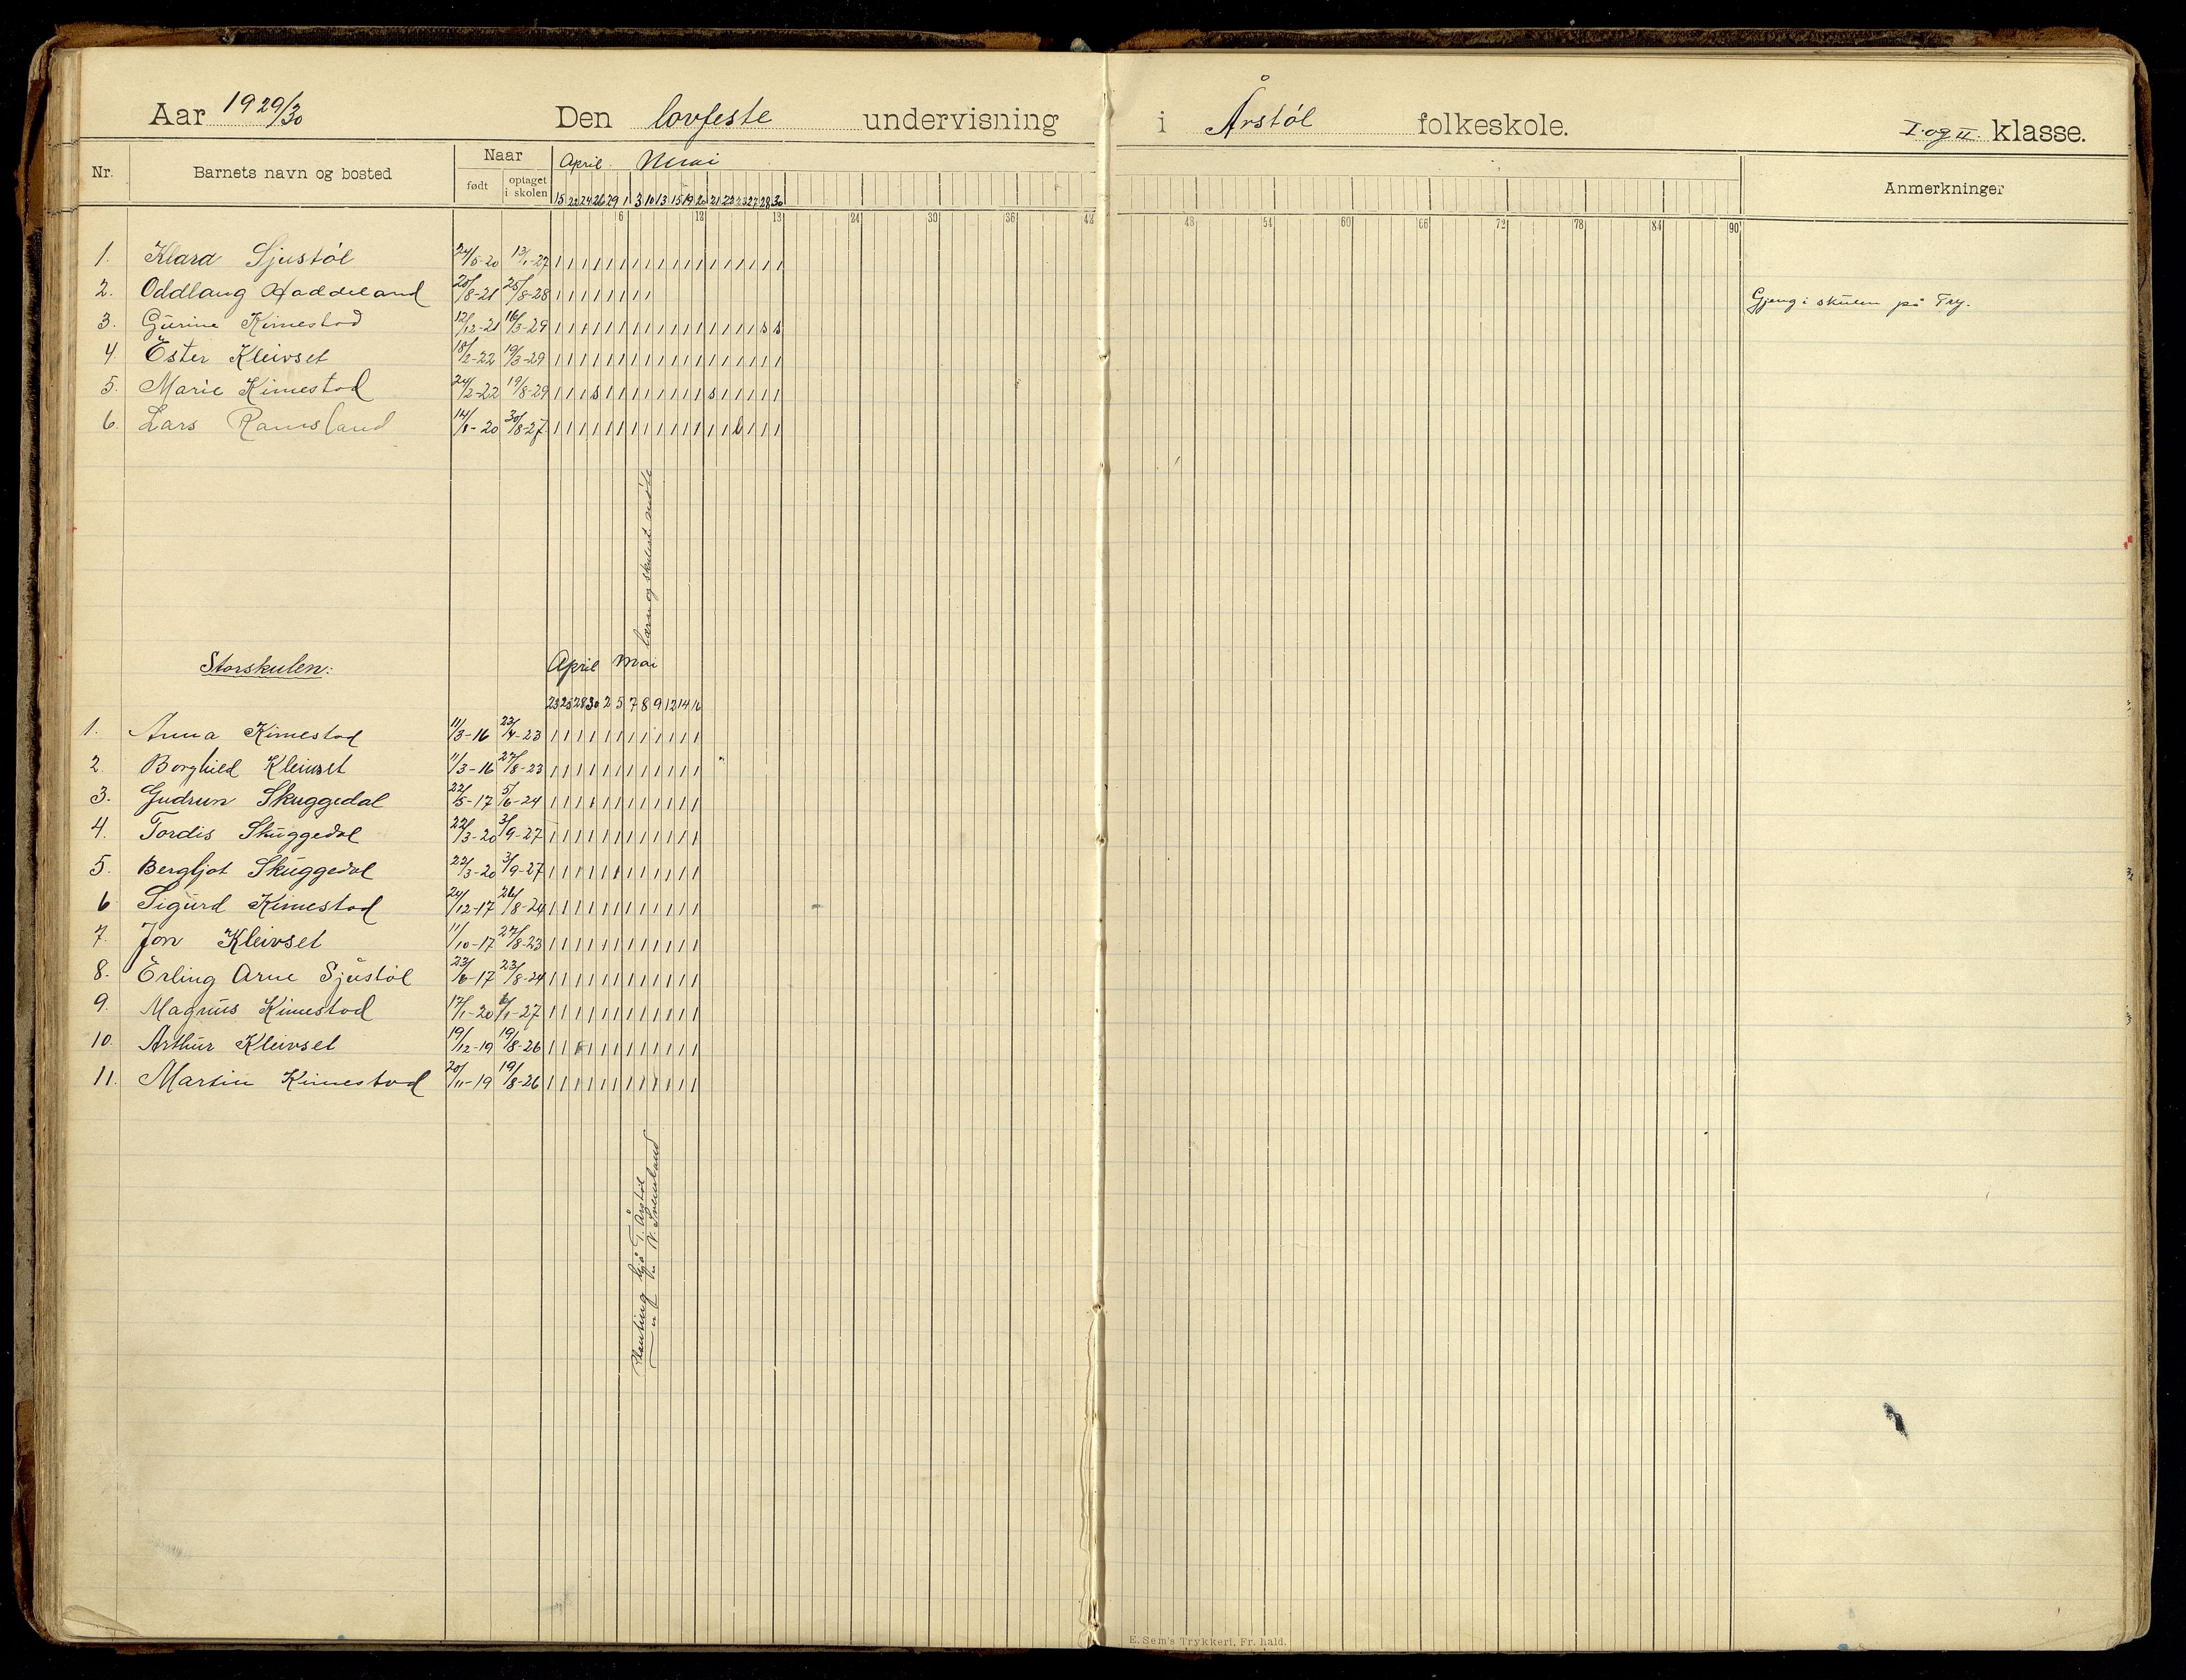 Aar 1929/30 Den lovfeste undervisning i Årstøl folkeskole. I og II. klasse.
Nr. Barnets navn og bosted Naar født optaget i skolen April. Mai Anmerkninger
15 22 24 26 29 1 3 10 13 15 19 20 21 22 23 27 28 30
6 12 18 24 30 36 42 48 54 60 66 72 78 84 90
1. Klara Sjustøl 24/5-20 13/1-27
2. Oddlaug Haddeland 20/8-21 25/8-28 Gjeng i skulen på Try.
3. Gurine Kimestad 12/12-21 16/3-29 s s
4. Ester Kleivset 18/2-22 19/3-29
5. Marie Kimestad 24/2-22 19/8-29 s s
6. Lars Ramsland 14/8-20 30/8-27
lærar og skulest. møte
Storskulen: April Mai
23 25 28 30 2 5 7 8 9 12 14 16
1. Anna Kimestad 11/3-16 23/4-23
2. Borghild Kleivset 11/3-16 27/8-23
3. Gudrun Skuggedal 22/5-17 5/6-24
4. Tordis Skuggedal 22/3-20 3/9-27
5. Bergljot Skuggedal 22/3-20 3/9-27
6 Sigurd Kimestad 24/12-17 26/8-24
7. Jon Kleivset 11/10-17 27/8-23
8. Erling Arne Sjustøl 23/6-17 23/8-24
9. Magnus Kimestad 17/1-20 6/1-27
10. Arthur Kleivset 19/12-19 19/8-26
11. Martin Kimestad 20/11-19 19/8-26
Planting hjå T. Årstøl
— " — " N. Sveindland
E. Sem's Trykkeri, Fr. hald.